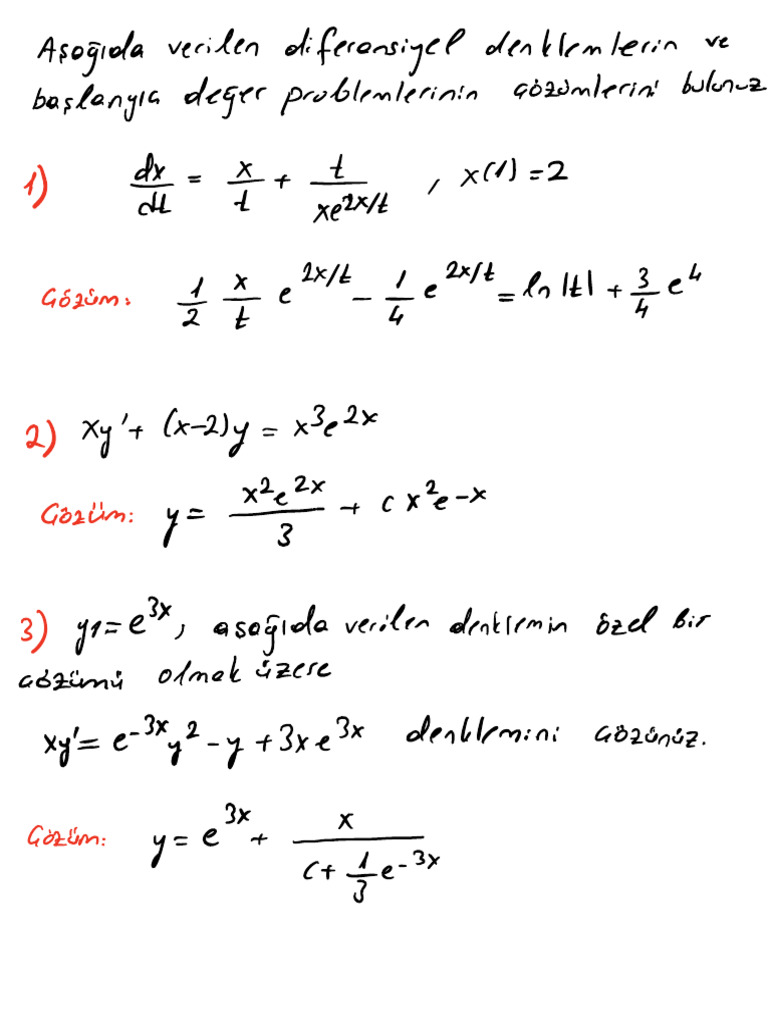 Aşağıda verilen diferansiyel denklemlerin ve
başlangıç değer problemlerinin çözümlerini bulunuz
1) dx/dt = x/t + t/(xe^(2x/t)) , x(1) = 2
Çözüm: 1/2 x/t e^(2x/t) - 1/4 e^(2x/t) = ln|t| + 3/4 e^4
2) xy' + (x-2)y = x^3e^(2x)
Çözüm: y = x^2e^(2x)/3 + c x^2e^(-x)
3) y1 = e^(3x), aşağıda verilen denklemin özel bir
çözümü olmak üzere
xy' = e^(-3x)y^2 - y + 3xe^(3x) denklemini çözünüz.
Çözüm: y = e^(3x) + x/(c + 1/3 e^(-3x))